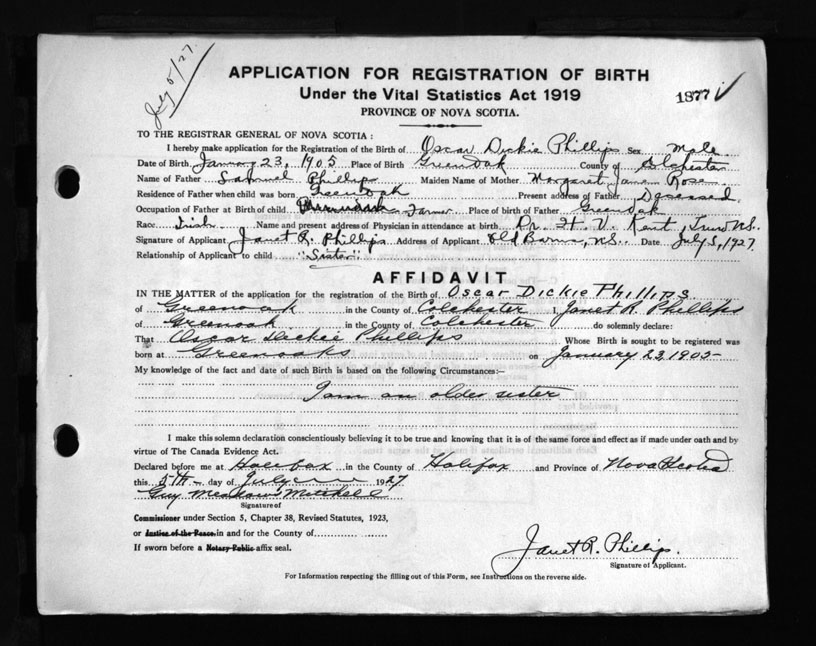 July 5/27.
APPLICATION FOR REGISTRATION OF BIRTH
Under the Vital Statistics Act 1919
1877
PROVINCE OF NOVA SCOTIA.
TO THE REGISTRAR GENERAL OF NOVA SCOTIA :
I hereby make application for the Registration of the Birth of Oscar Dickie Phillips Sex Male
Date of Birth January 23, 1905 Place of Birth Greenoak County of Colchester
Name of Father Samuel Phillips Maiden Name of Mother Margaret Jane Rose
Residence of Father when child was born Greenoak Present address of Father Deceased
Occupation of Father at Birth of child Farmer Place of birth of Father Greenoak
Race Irish Name and present address of Physician in attendance at birth Dr. H. V. Kent, Truro NS.
Signature of Applicant Janet R. Phillips Address of Applicant Old Barns, NS. Date July 5, 1927.
Relationship of Applicant to child "Sister"
AFFIDAVIT
IN THE MATTER of the application for the registration of the Birth of Oscar Dickie Phillips
of Greenoak in the County of Colchester I, Janet R. Phillips
of Greenoak in the County of Colchester do solemnly declare:
That Oscar Dickie Phillips Whose Birth is sought to be registered was
born at Greenoaks on January 23, 1905
My knowledge of the fact and date of such Birth is based on the following Circumstances:—
I am an older sister
I make this solemn declaration conscientiously believing it to be true and knowing that it is of the same force and effect as if made under oath and by
virtue of The Canada Evidence Act.
Declared before me at Halifax in the County of Halifax and Province of Nova Scotia
this 5th day of July 1927
Guy Mitchell
Signature of
Commissioner under Section 5, Chapter 38, Revised Statutes, 1923,
or Justice of the Peace in and for the County of
If sworn before a Notary Public affix seal.
Janet R. Phillips.
Signature of Applicant.
For Information respecting the filling out of this Form, see Instructions on the reverse side.